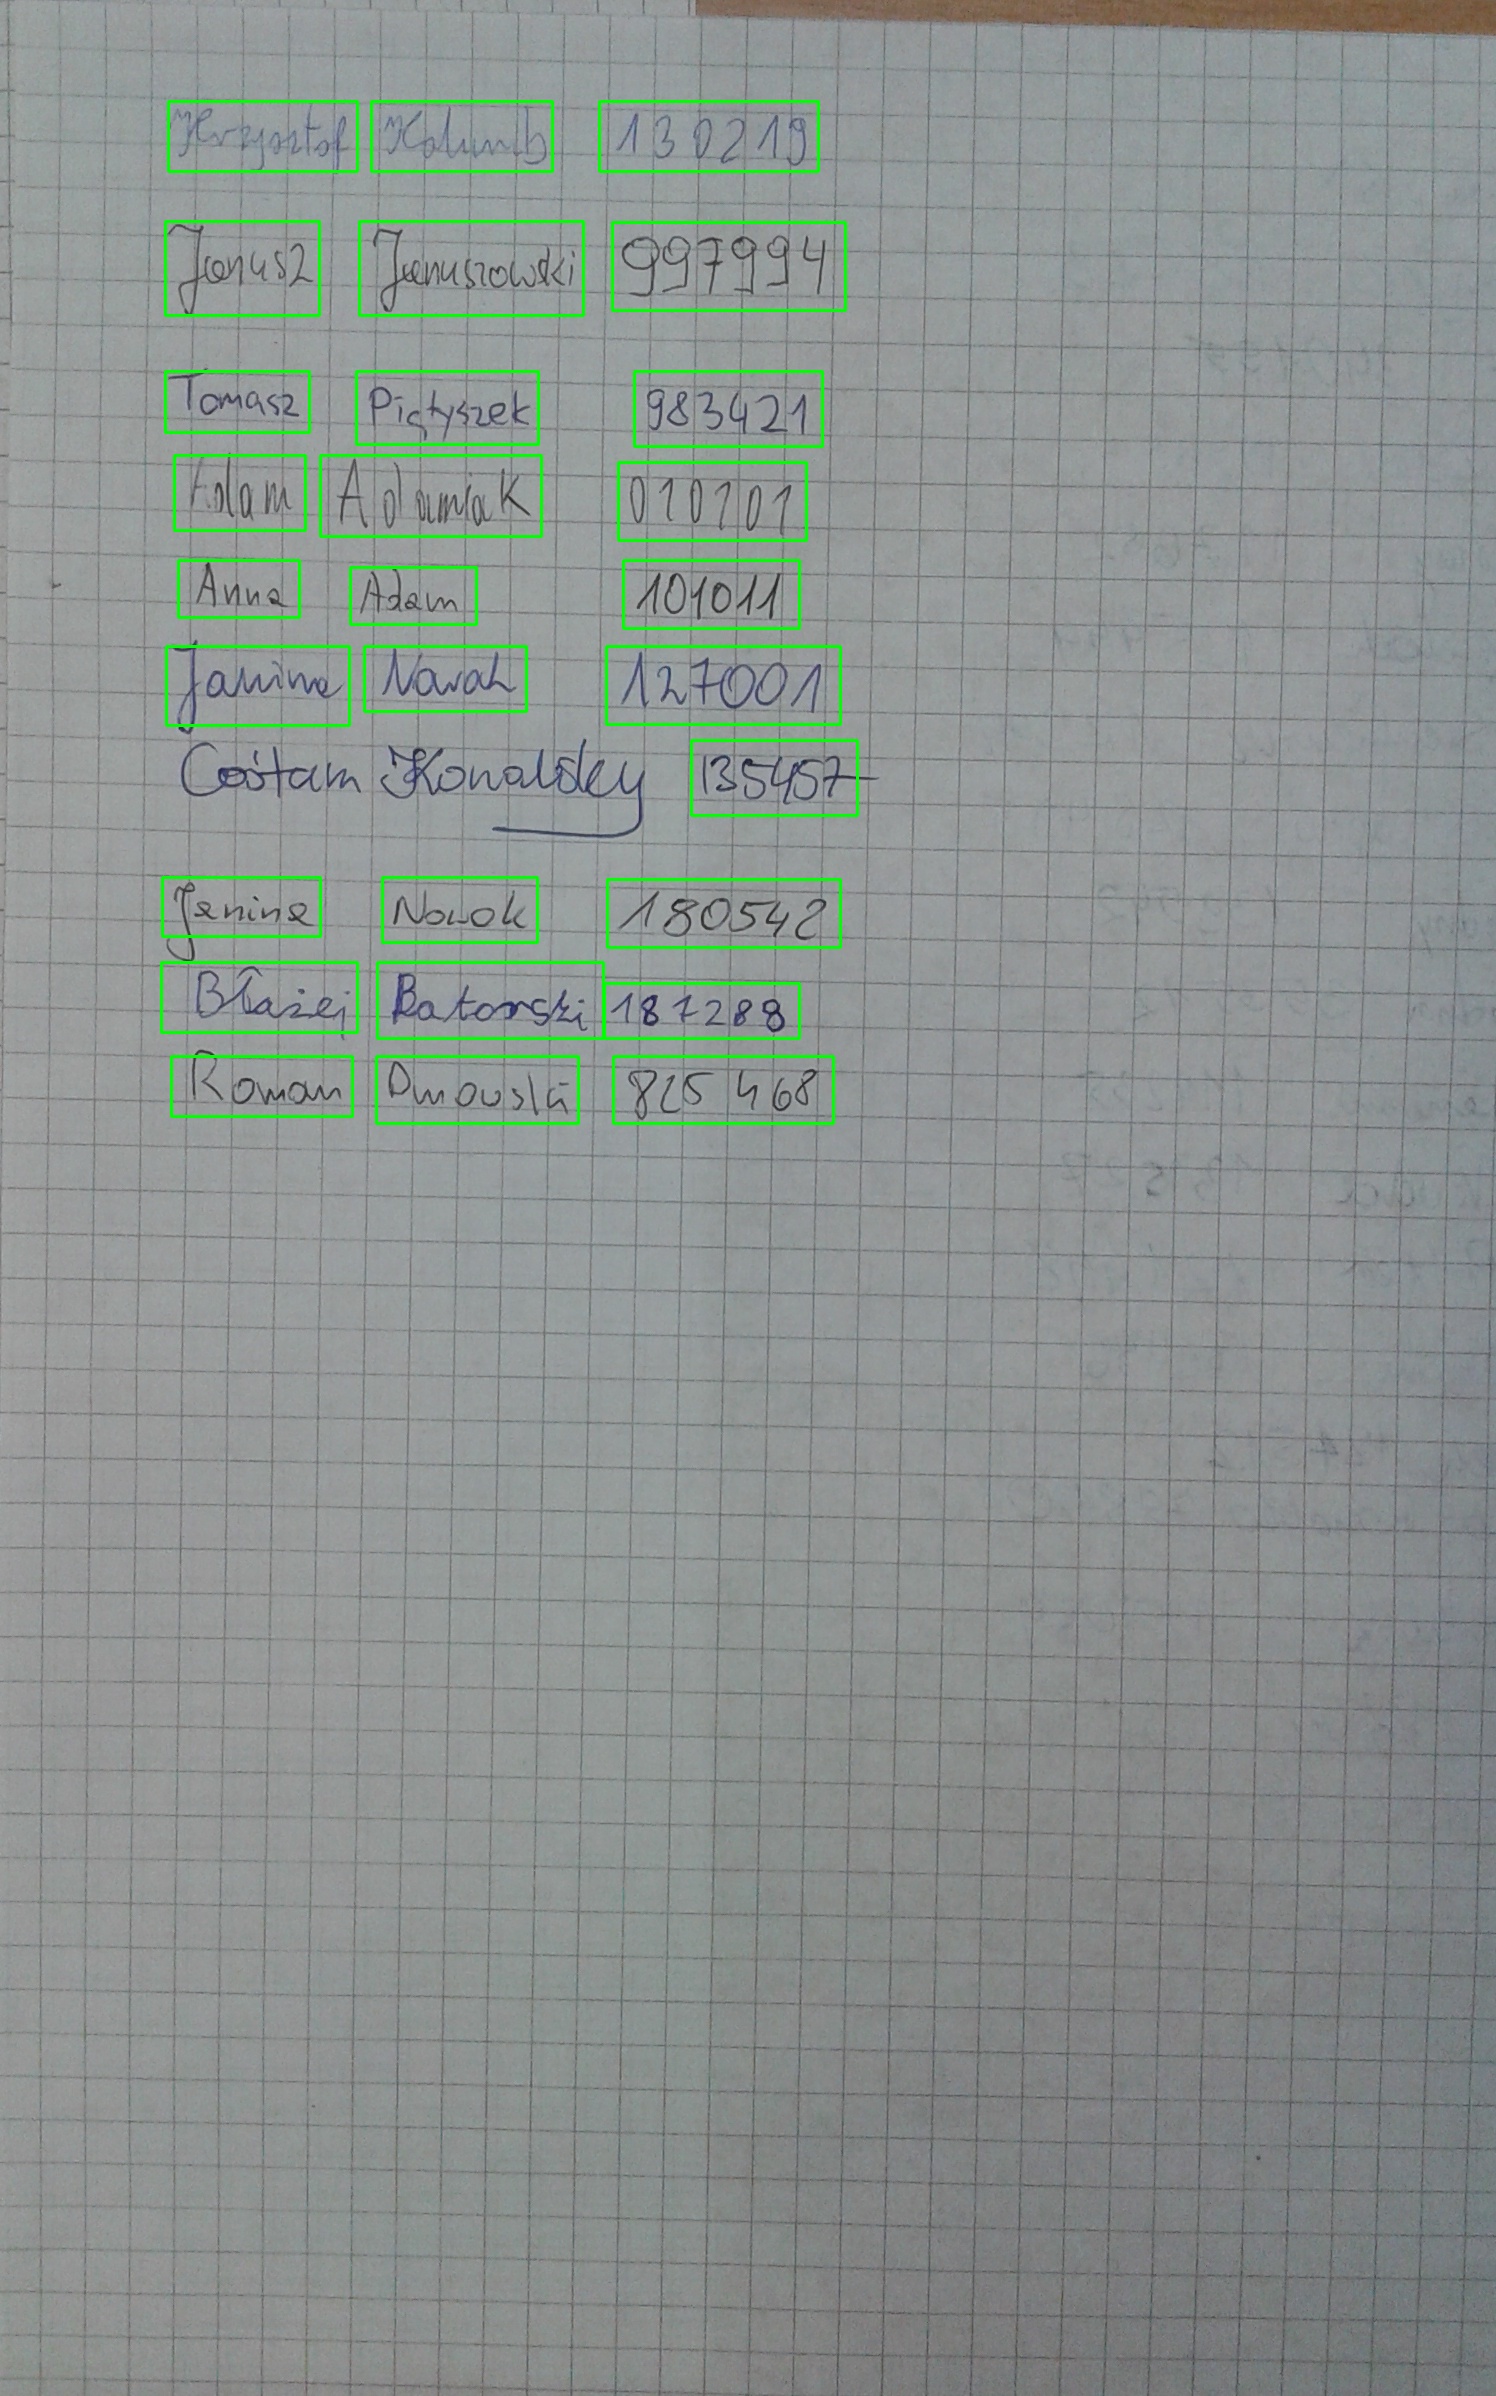 Krzysztof Kolumb 130219
Janusz Januszowski 997994
Tomasz Piętyszek 983421
Adam Adamiak 010101
Anna Adam 101011
Janina Nowak 127001
Cośtam Kowalsky 135457
Janina Nowak 180542
Błażej Batorski 187288
Roman Dmowski 825 468